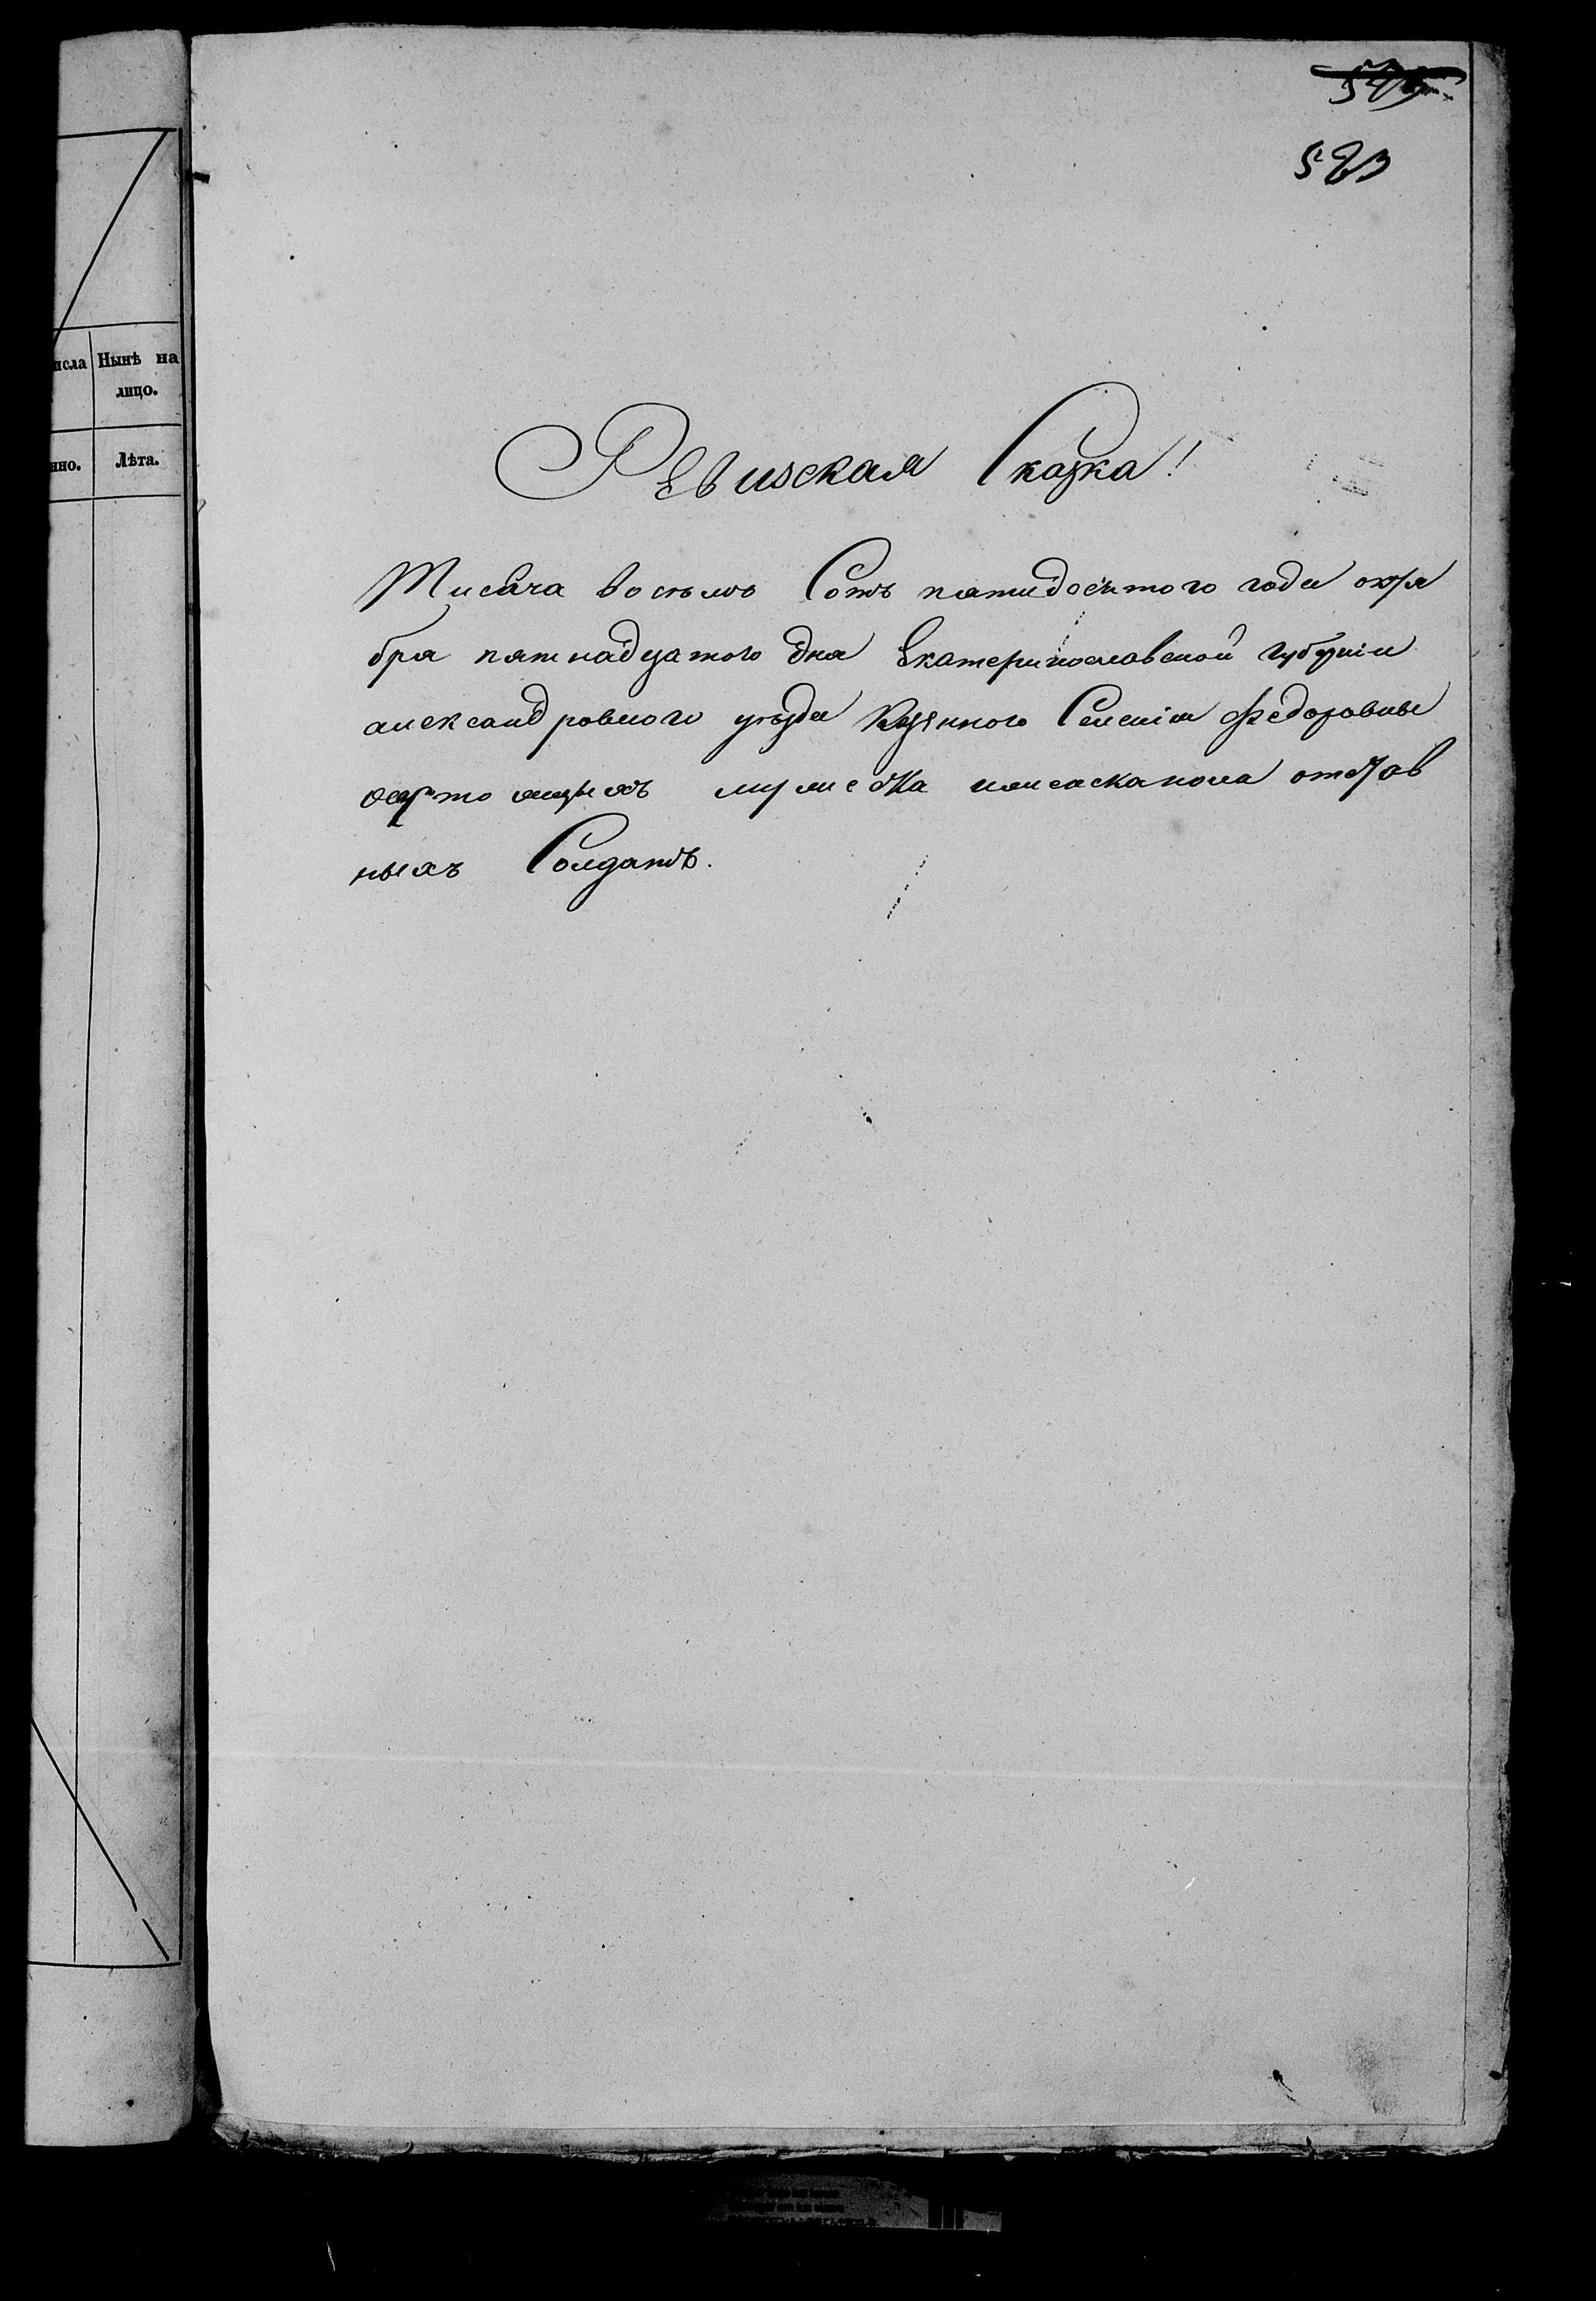 523
исла Нынѣ на
лицо.
нно. Лѣта.
Ревизская Сказка!
Тисяча восемъ Сотъ пятидесятого года октя
бря пятнадцатого дня Екатеринославской губерніи
александровского уѣзда Казенного Селенія Федоровки
мужеска отстав
ныхъ Солдатъ.